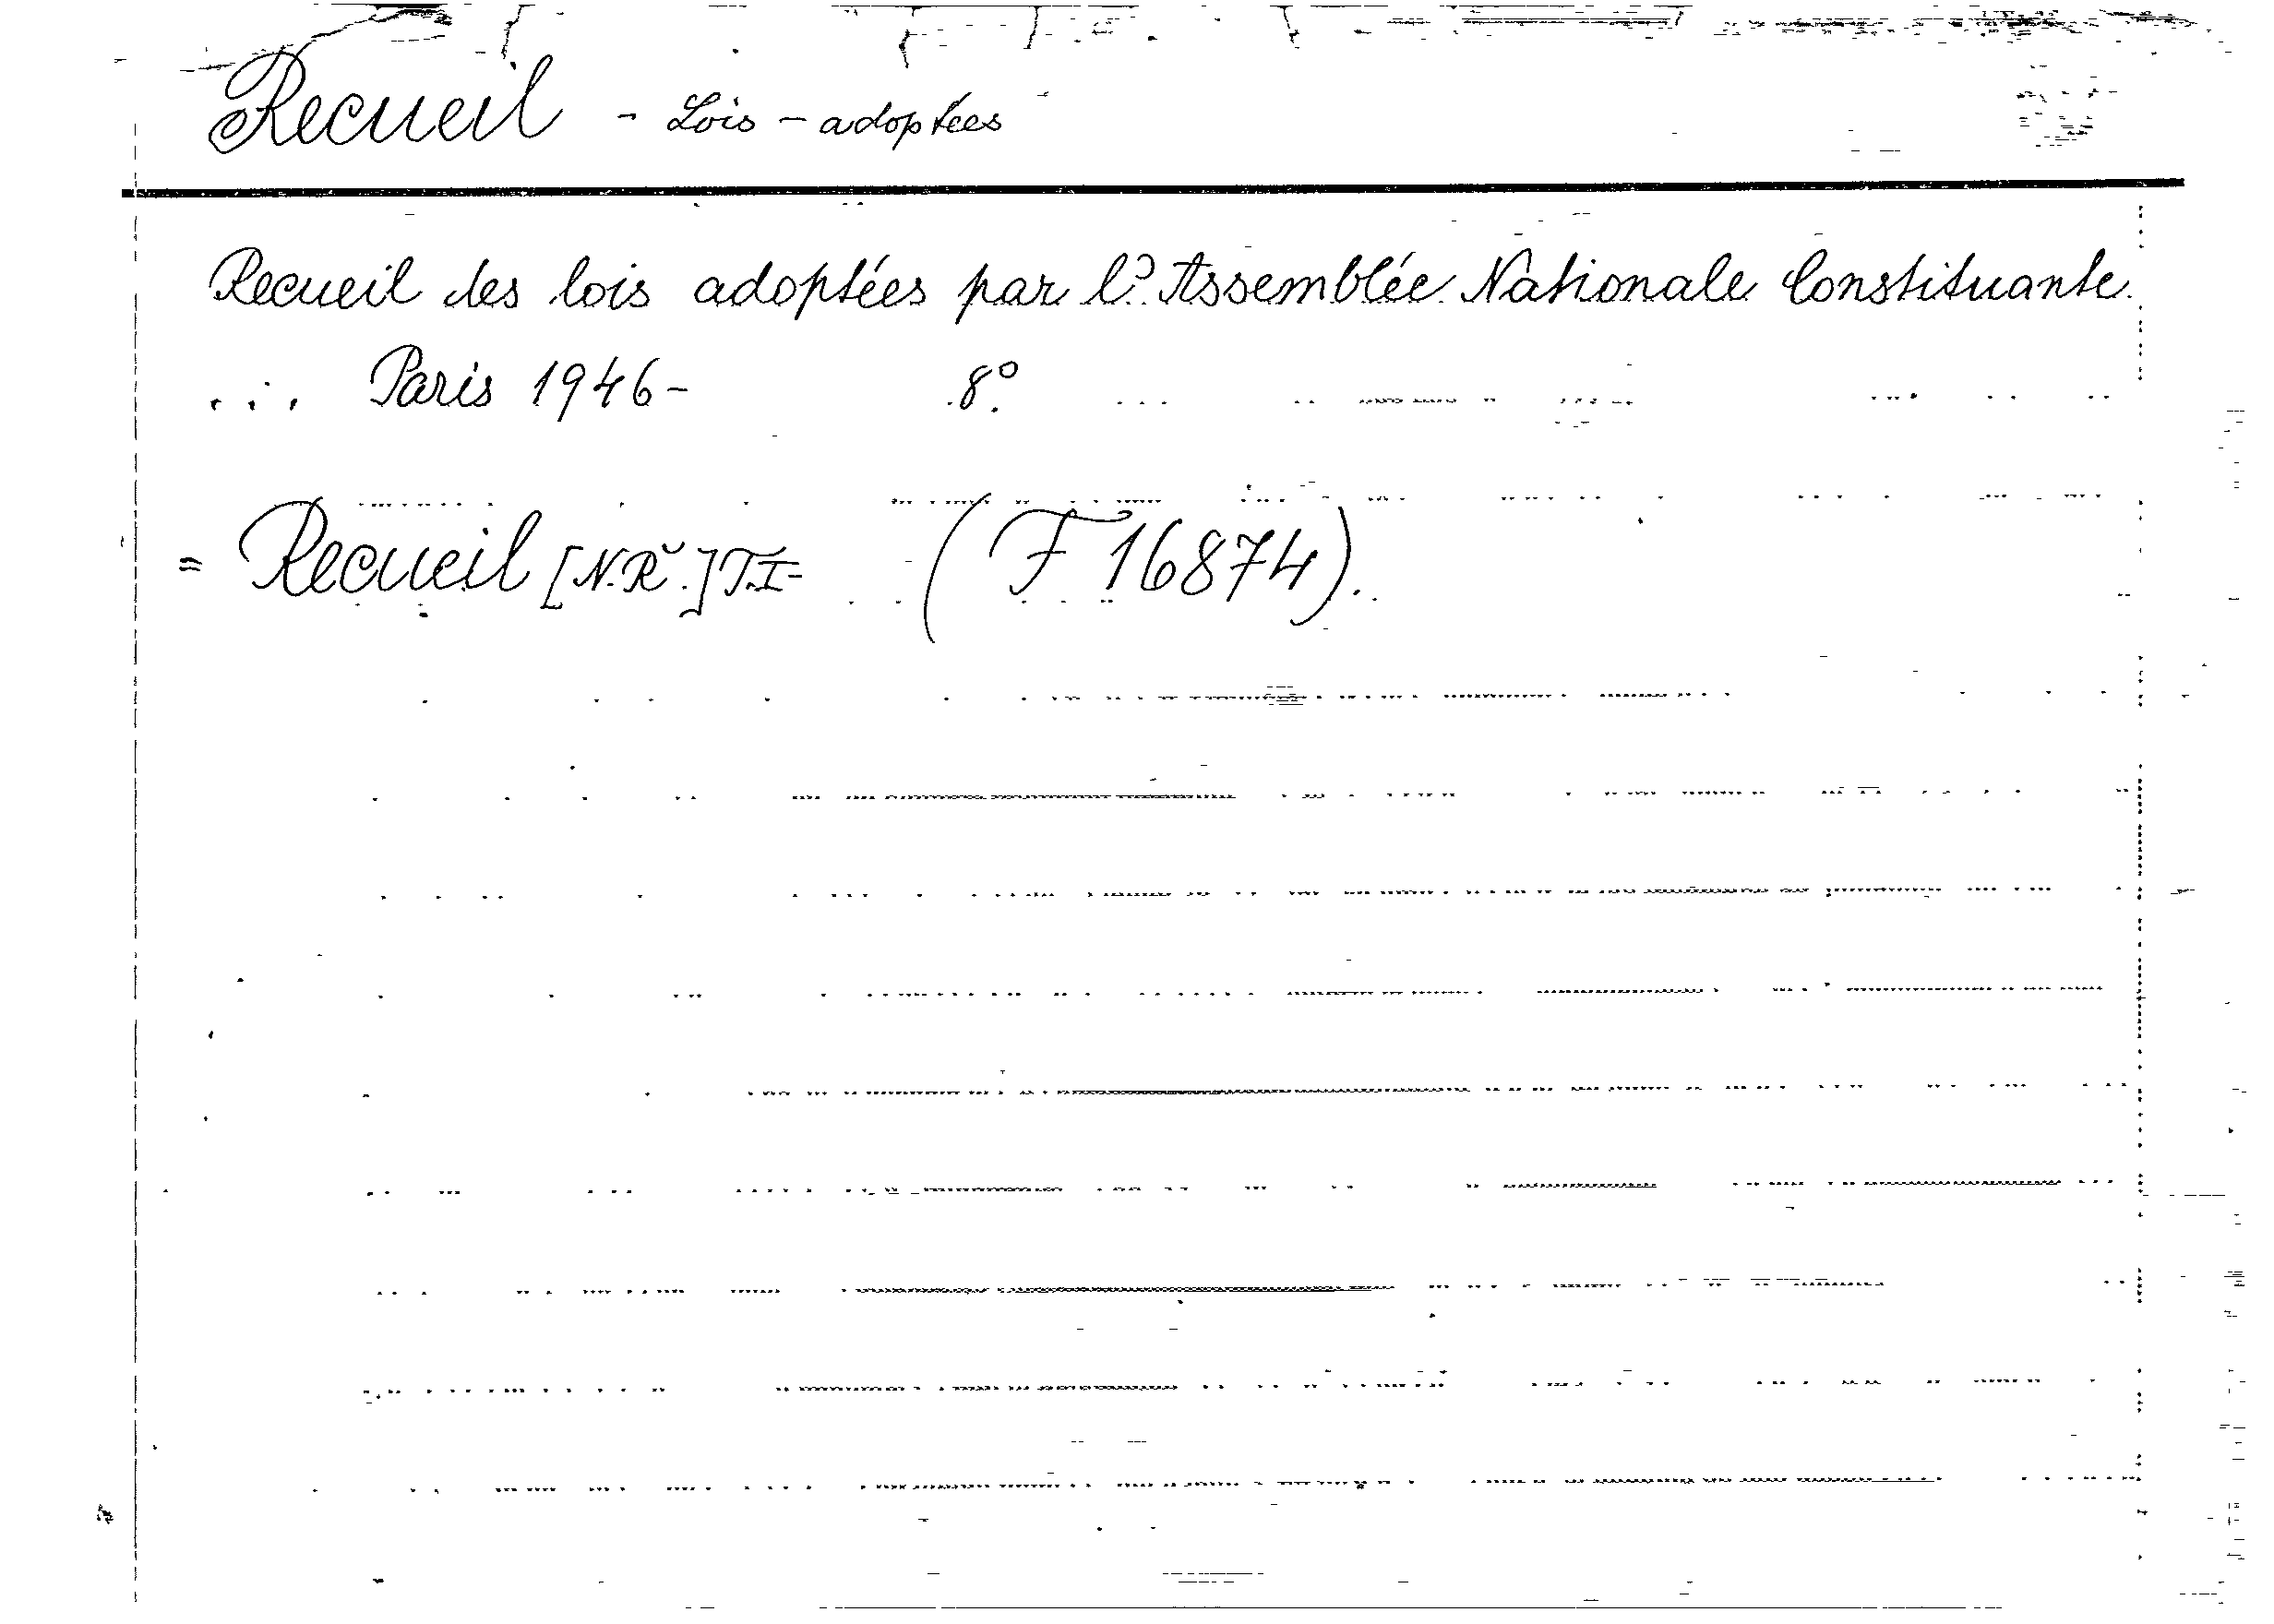 Recueil - Lois - adoptées
Recueil des lois adoptées par l'Assemblée Nationale Constituante.
... Paris 1946- 8°.
= Recueil [N.R.] T.I- (F 16874).